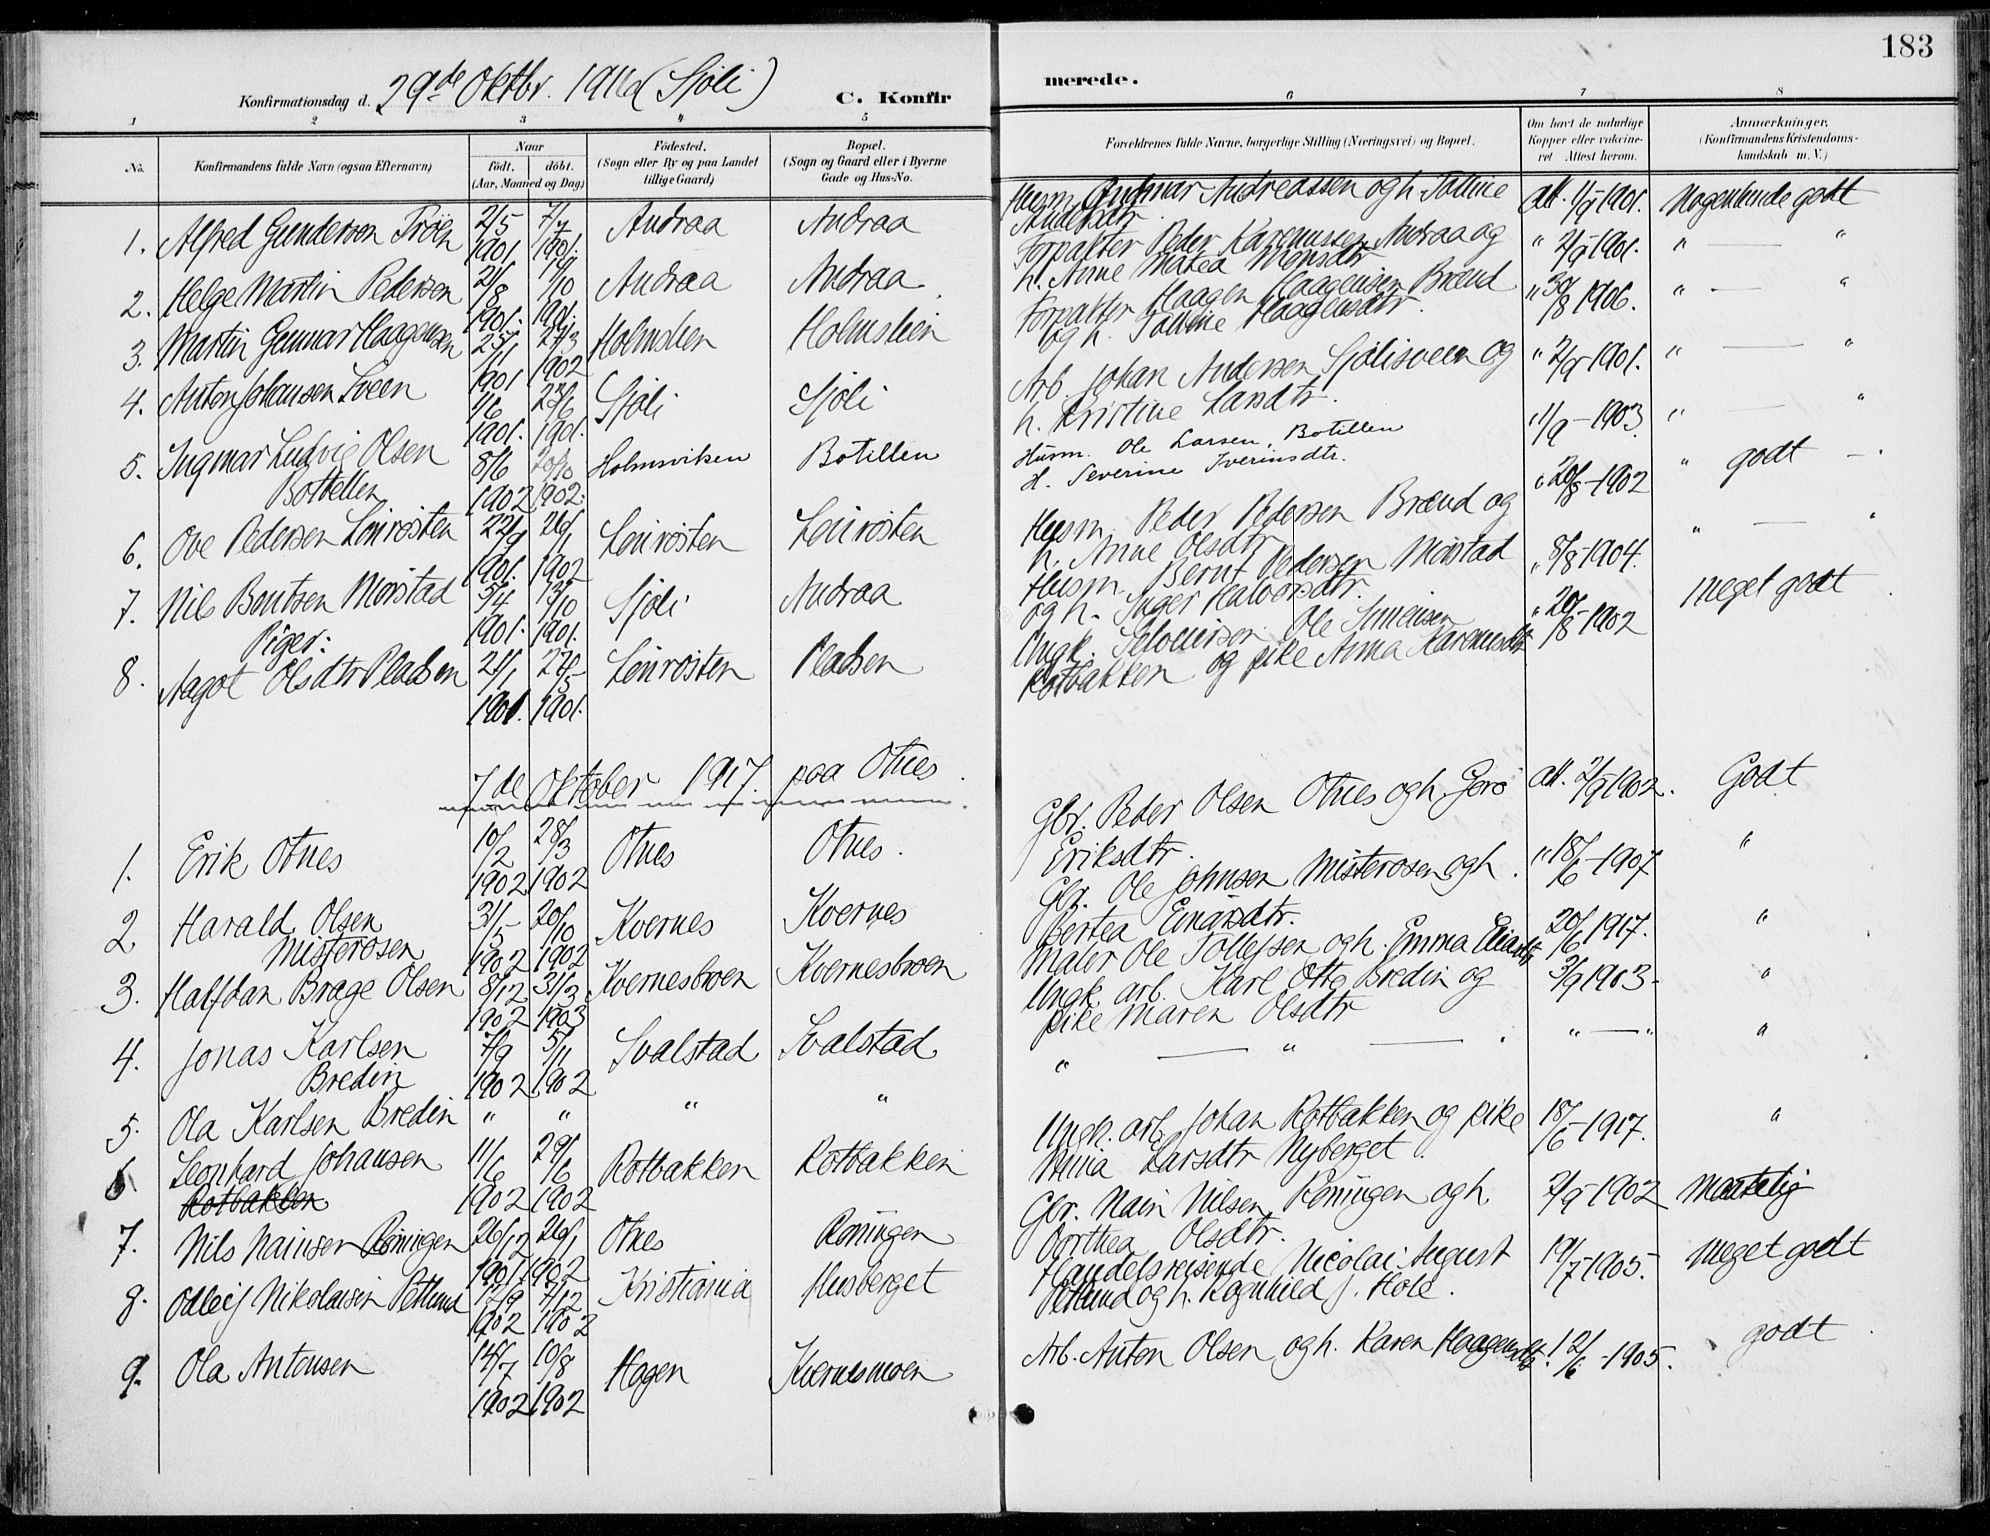 183
Konfirmationsdag d. 29de Oktbr. 1916 (Sjöli) C. Konfir merede.
1 2 3 4 5 6 7 8
No. Konfirmandens fulde Navn (ogsaa Efternavn) Naar födt. döbt. (Aar, Maaned og Dag) Födested. (Sogn eller By og paa Landet tillige Gaard) Bopæl. (Sogn og Gaard eller i Byerne Gade og Hus-No. Forældrenes fulde Navne, borgerlige Stilling (Næringsvei) og Bopæl. Om havt de naturlige Kopper eller vakcineret Attest herom. Anmærkninger. (Konfirmandens Kristendomskundskab m. V.)
1. Alfred Gundersen Tröen 2/5 1901. 7/7 1901. Andraa Andraa Husm. Gudmar Andreassen og h. Tolline Andersdtr. Att. 1/9 1901. Nogenlunde godt
2. Helge Martin Pedersen 21/8 1901. 1901. Andraa Andraa Forpakter Peder Karenussen Andraa og h. Anne Matea Monsdtr. " 2/9 1901. " — "
3. Martin Gunnar Haagensen 25/11 1901 27/3 1902 Holmsteen Holmsteen Forpakter Haagen Haagensen Brænd og h. Tolline Haagensdtr. " 30/8 1906. " — "
4. Anton Johansen Sveen 1/6 1901. 23/6 1901. Sjöli Sjöli Arb. Johan Andersen Sjölisveen og h. Kristine Larsdtr. " 2/9 1901. " — "
5. Ingmar Ludvig Olsen Botbellen 8/6 1902 20/10 1902. Holmsviken Botillen Husm. Ole Larsen, Botillen h. Severine Iverinsdtr. " 1/9 - 1903. " — "
6. Ove Pedersen Lönrösten 22/9 1901. 26/1 1902 Lönrösten Lönrösten Husm. Peder Pedersen Brænd og h. Anne Olsdtr. " 20/8 - 1902 " godt — .
7. Nils Bentsen Morstad 5/4 1901. 13/10 1901. Sjöli Andraa Husm. Bernt Pedersen Morstad og h. Inger Halvorsdtr. " 8/8 - 1904. " — "
Piger:
8. Aagot Olsdtr Pladsen 21/1 1901. 27/5 1901. Lönrösten Pladsen Ungk. Ole Simensen Rotbakken og pike Anna Karenusdtr " 20/8 - 1902 Meget godt
7de Oktober 1917. paa Otnes.
1. Erik Otnes 10/2 1902 28/3 1902 Otnes Otnes. Gbr. Peder Olsen Otnes og h. Gorö Eriksdtr. Att. 2/9 1902. Godt
2 Harald Olsen Misterosen 31/5 1902 20/10 1902 Kvernes Kvernes Gbr. Ole Johnsen Misterosen og h. Bertea Einarsdtr. " 18/6 - 1907 "
3. Halfdan Brage Olsen 8/12 1902 31/3 1903 Kvernesbroen Kvernesbroen Maler Ole Tollefsen og h. Emma Eliasdtr 20/6 1917. "
4. Jonas Karlsen Bredin 7/9 1902 5/11 1902 Svalstad Svalstad Ungk. arb. Karl Otto Bredin og pike Maren Olsdtr 3/9 1903 - "
5. Ola Karlsen Bredin " " " " " — " — . " — " "
6. Leonhard Johansen Rotbakken 11/6 1902 29/6 1902 Rotbakken Rotbakken Ungk. arb. Johan Rotbakken og pike Mina Larsdtr Nyberget. 18/6 - 1917. "
7. Nils Nainsen Röningen 26/12 1901 26/1 1902 Otnes Röningen Gbr. Nain Nilsen Röningen og h. Dorthea Olsdtr. 2/9 - 1902 Maatelig
8. Odleif Nikolaisen Petlund 12/9 1902 7/12 1902 Kristiania Husberget Handelsreisende Nicolai August Petlund og h. Ragnhild J. Hole. 19/7 - 1905. Meget godt
9. Ola Antonsen 14/7 1902 10/8 1902 Hagen Kvernesmoen Arb. Anton Olsen og h. Karen Haagensdtr. 12/6 - 1905. godt